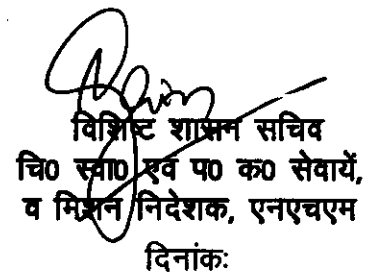 विशिष्ट शासन सचिव
चि0 स्वा0 एवं प0 क0 सेवायें,
व मिशन निदेशक, एनएचएम
दिनांकः